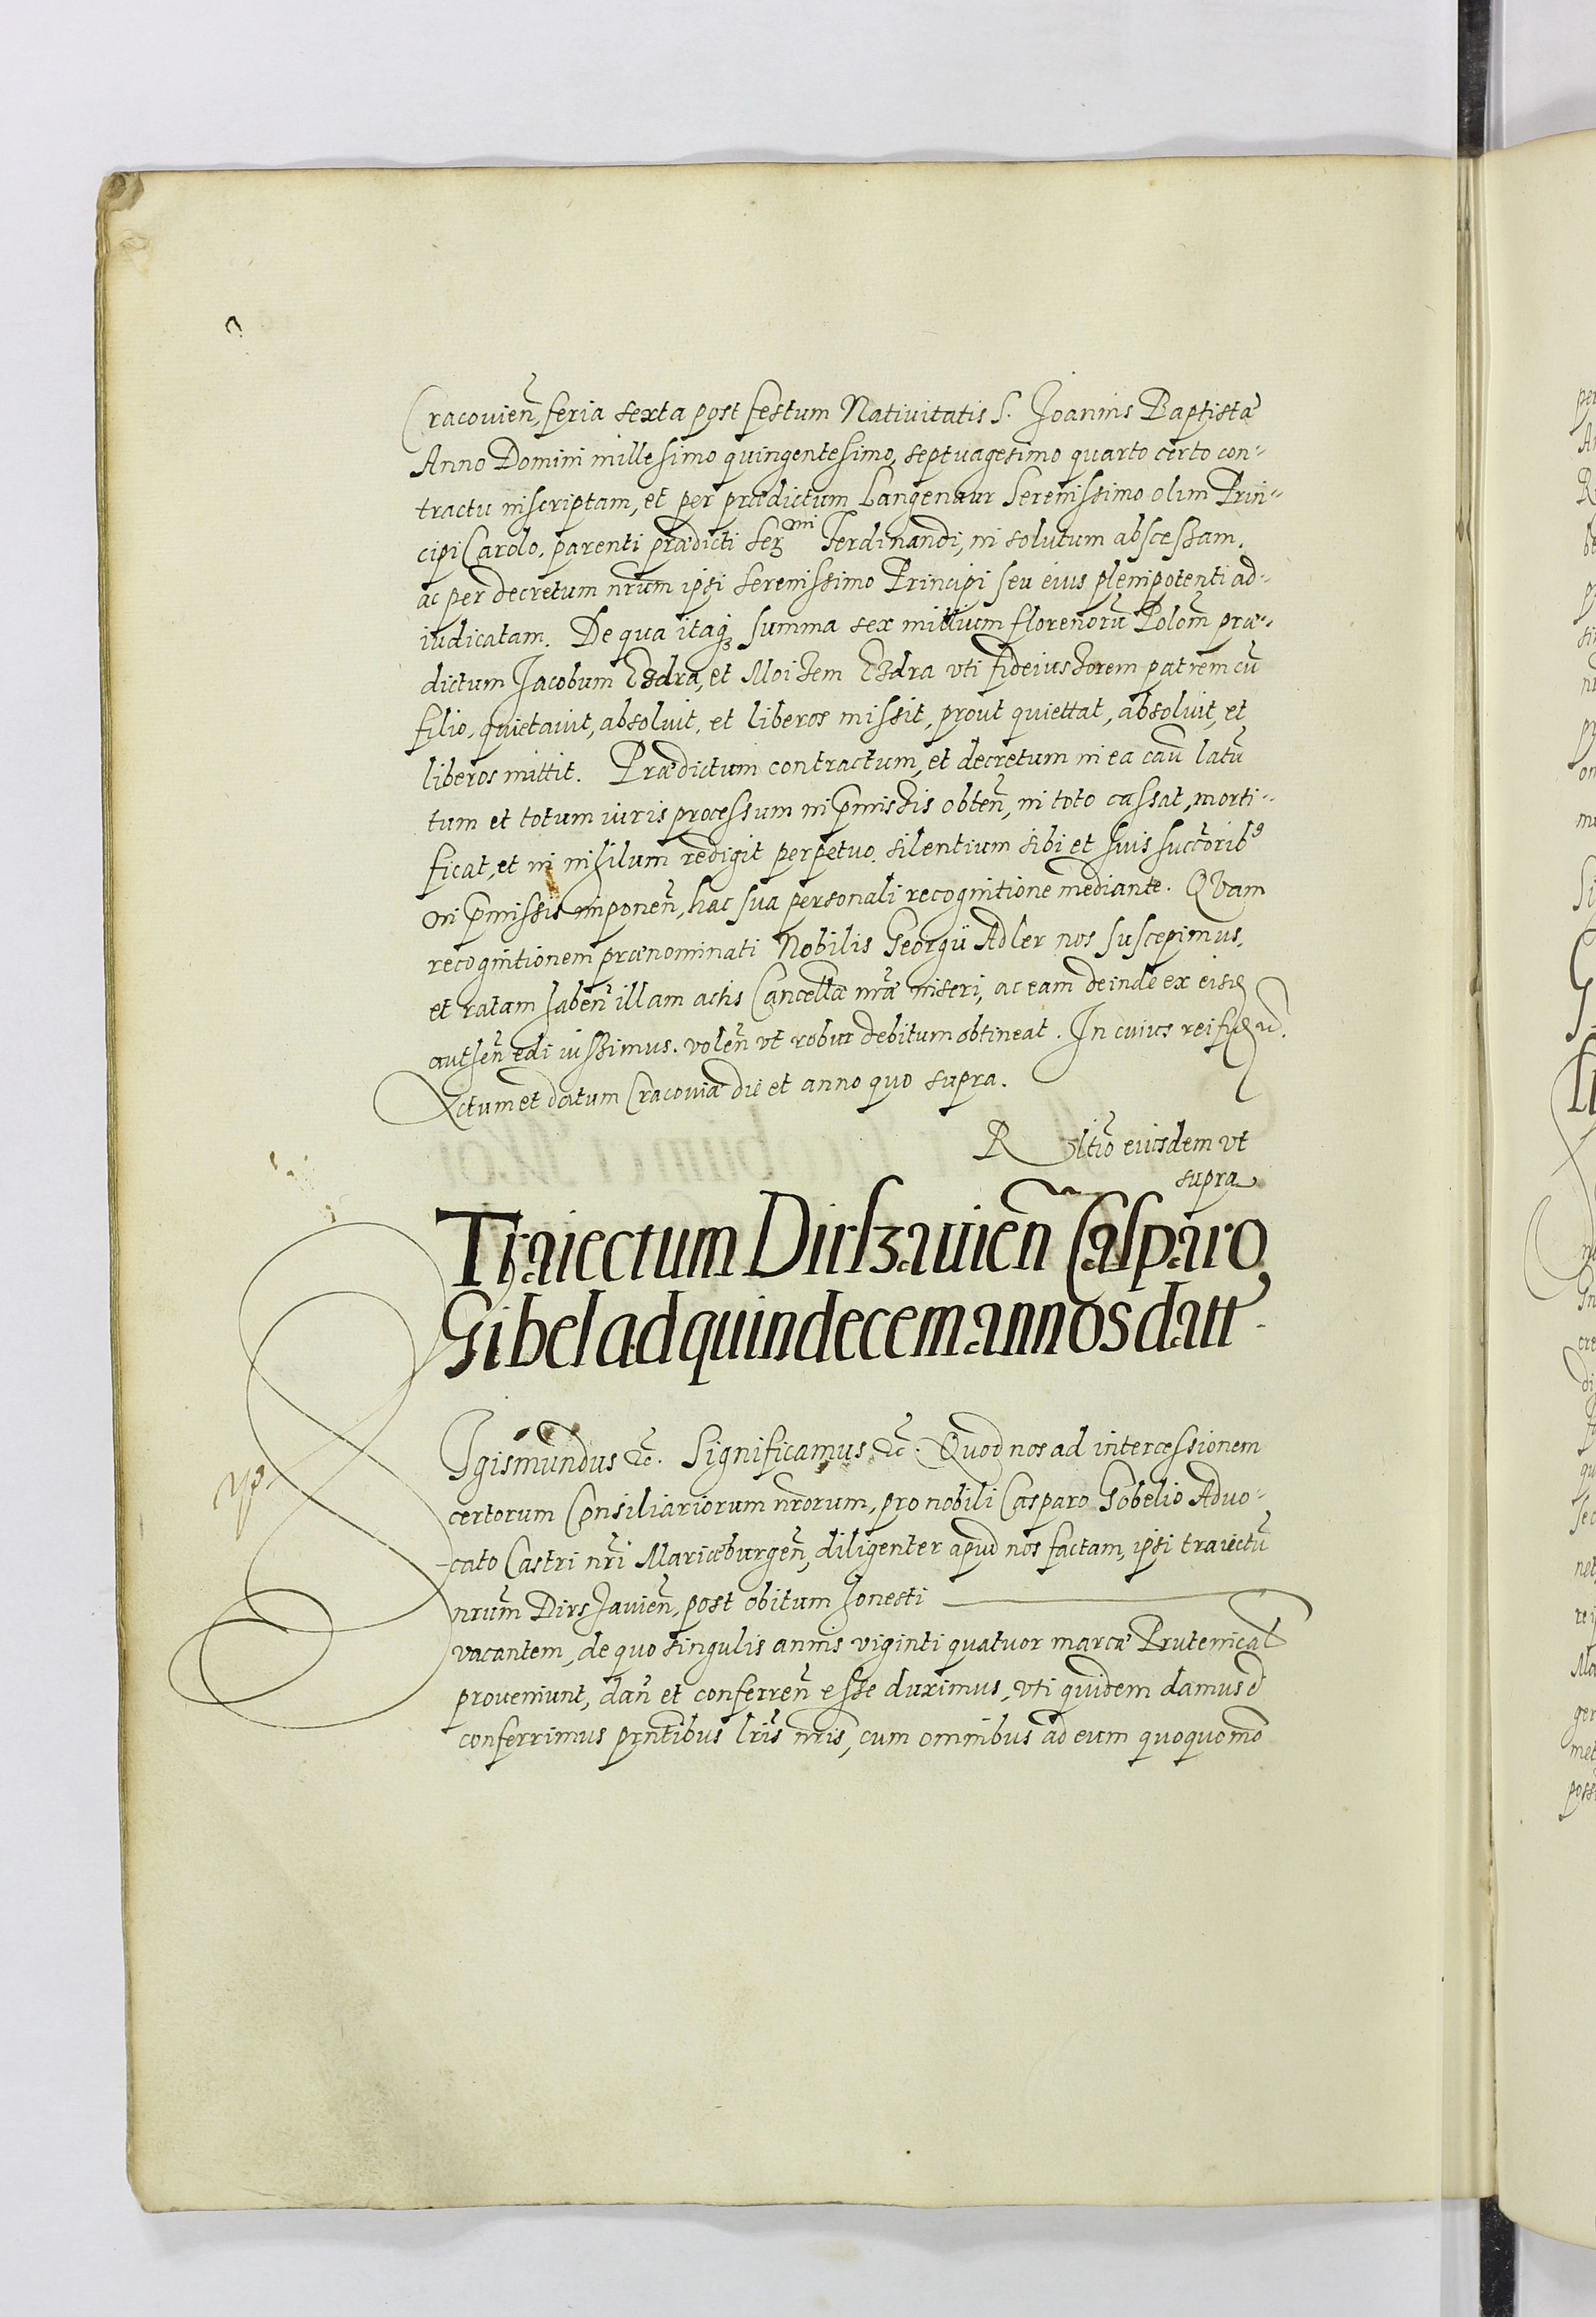 Cracovien̄, feria sexta post festum Nativitatis S. Joannis Baptistæ
Anno Domini millesimo quingentesimo, septuagesimo quarto certo con-
tractu inscriptam, et per prædictum Langenaur Serenissimo olim Prin-
cipi Carolo, parenti prædicti Ser<sup>mi</sup> Ferdinandi, in solutum abscessam,
ac per decretum nrūm ipsi Serenissimo Principi seu eius plenipotenti ad-
iudicatam. De qua itaq₃ summa sex millium florenorū Polon̄ præ-
dictum Jacobum Ezdra, et Moisem Ezdra vti fideiussorem patrem cū
filio, quietavit, absoluit, et liberos missit, prout quiettat, absoluit, et
liberos mittit. Prædictum contractum, et decretum in ea caū latū
tum et totum iuris processum in p̄missis obten̄, in toto cassat, morti-
ficat, et in nihilum redigit perpetuo silentium sibi et suis succ̄torib⁹
in p̄missis imponen̄, hac sua personali recognitione mediante. Quam
recognitionem prænominati Nobilis Georgii Adler nos suscepimus,
et ratam haben̄ illam actis Cancellæ nr̄æ inseri, ac eam deinde ex eisd
authen̄ edi iussimus. volen̄ vt robur debitum obtineat. In cuius rei fid
Actum et datum Cracoviæ die et anno quo supra.
Rltīo eiusdem vt
supra
Traiectum Dirszavien̄ Casparo
Gibel ad quindecem annos datt
?
Sigismundus &c̄. Significamus &c̄. Quod nos ad intercessionem
certorum Consiliariorum nrōrum, pro nobili Casparo Gobelio Advo-
cato Castri nrī Mariæburgen̄, diligenter apud nos factam, ipsi traiectū
nrūm Dirshavien̄, post obitum honesti
vacantem, de quo singulis annis viginti quatuor marcæ Prutenical
proveniunt, dan̄ et conferren̄ esse duximus, vti quidem damus &
conferrimus prn̄tibus lrīs nrīs, cum omnibus ad eum quoquomō